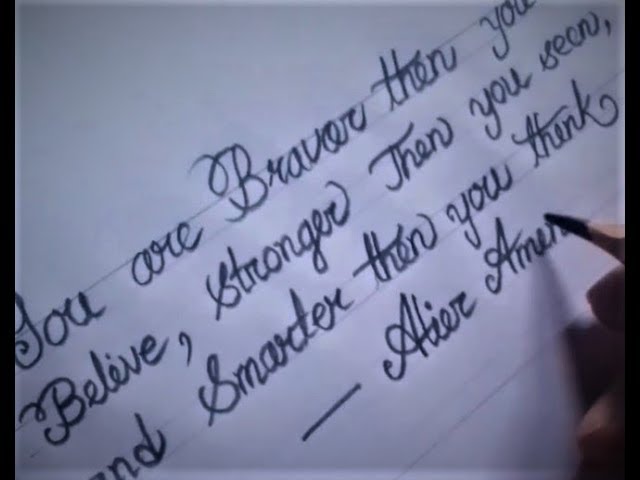 You are Braver then you
Beleive, stronger Then you seen,
and Smarter then you think
— Atier Amen